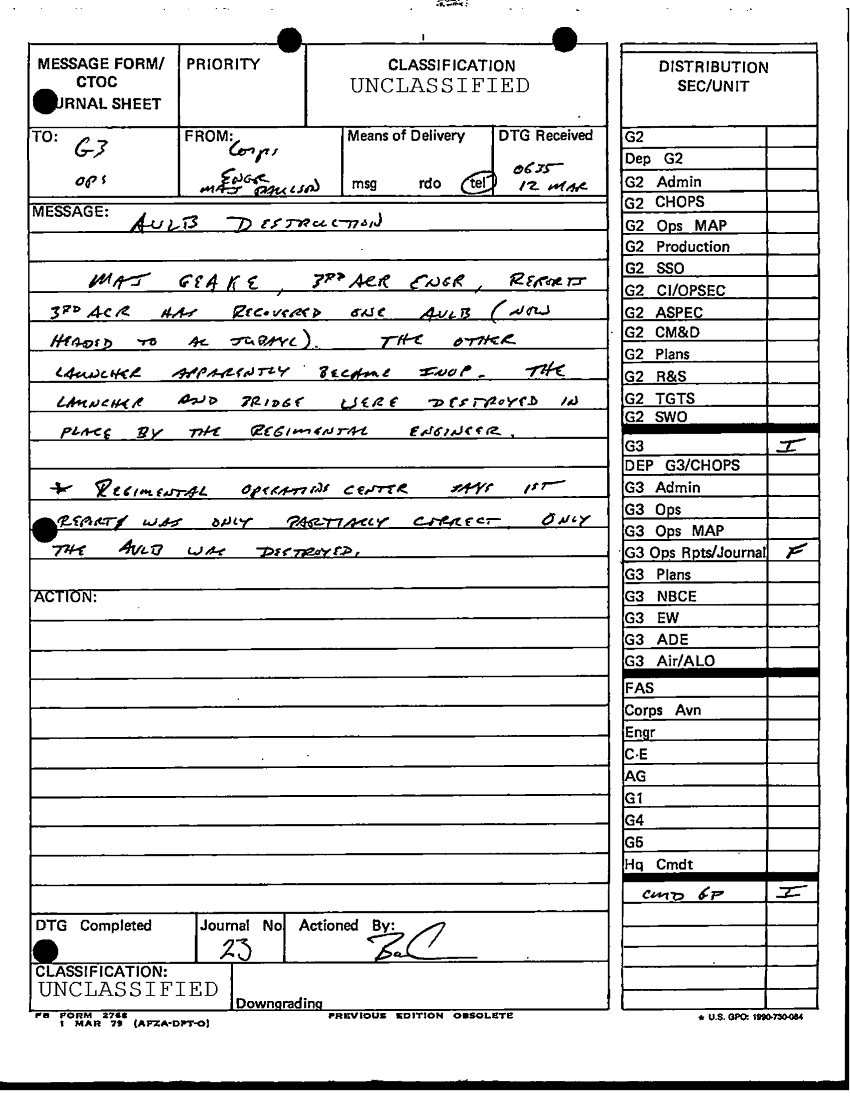 MESSAGE FORM/
CTOC
URNAL SHEET
PRIORITY
CLASSIFICATION
UNCLASSIFIED
TO: G3
OPS
FROM: Corps
ENGR
MAJ PAULSON
Means of Delivery
msg rdo tel
DTG Received
0635
12 MAR
MESSAGE: AVLB DESTRUCTION
MAJ GEAKE, 3RD ACR ENGR, REPORTS
3RD ACR HAS RECOVERED ONE AVLB (NOW
HEADED TO AL JUBAYL). THE OTHER
LAUNCHER APPARENTLY BECAME INOP. THE
LAUNCHER AND BRIDGE WERE DESTROYED IN
PLACE BY THE REGIMENTAL ENGINEER.
* REGIMENTAL OPERATIONS CENTER SAYS 1ST
REPORT WAS ONLY PARTIALLY CORRECT. ONLY
THE AVLB WAS DESTROYED.
ACTION:
DTG Completed
Journal No
23
Actioned By:
CLASSIFICATION:
UNCLASSIFIED
Downgrading
FB FORM 2768
1 MAR 79 (AFZA-DPT-O)
PREVIOUS EDITION OBSOLETE
DISTRIBUTION
SEC/UNIT
G2
Dep G2
G2 Admin
G2 CHOPS
G2 Ops MAP
G2 Production
G2 SSO
G2 CI/OPSEC
G2 ASPEC
G2 CM&D
G2 Plans
G2 R&S
G2 TGTS
G2 SWO
G3 I
DEP G3/CHOPS
G3 Admin
G3 Ops
G3 Ops MAP
G3 Ops Rpts/Journal F
G3 Plans
G3 NBCE
G3 EW
G3 ADE
G3 Air/ALO
FAS
Corps Avn
Engr
C-E
AG
G1
G4
G5
Hq Cmdt
CMD GP I
* U.S. GPO: 1990-730-084